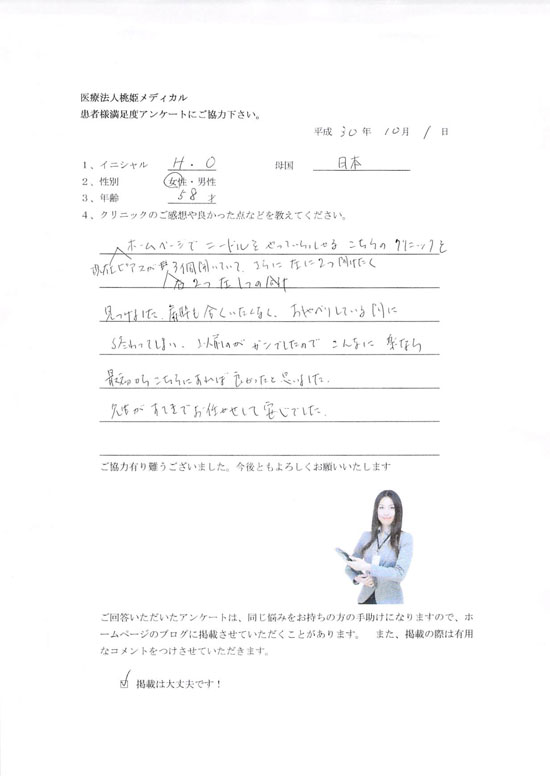 医療法人桃姫メディカル
患者様満足度アンケートにご協力下さい。
平成 30 年 10 月 1 日
1、イニシャル H.O 母国 日本
2、性別 女性・男性
3、年齢 58 才
4、クリニックのご感想や良かった点などを教えてください。
ホームページでニードルをやっていらっしゃる こちらの クリニックを
現在ピアスが 3個開いていて、さらに 左に2つ開けたく
右2つ 左1つの
見つけました。麻酔も全くいたくなく、おしゃべりしている間に
終わってしまい、以前のが ガンでしたので こんなに 楽なら
最初から こちらにすれば 良かったと思いました。
先生が すてきでお任せして 安心でした。
ご協力有り難うございました。今後ともよろしくお願いいたします
ご回答いただいたアンケートは、同じ悩みをお持ちの方の手助けになりますので、ホ
ームページのブログに掲載させていただくことがあります。 また、掲載の際は有用
なコメントをつけさせていただきます。
掲載は大丈夫です！